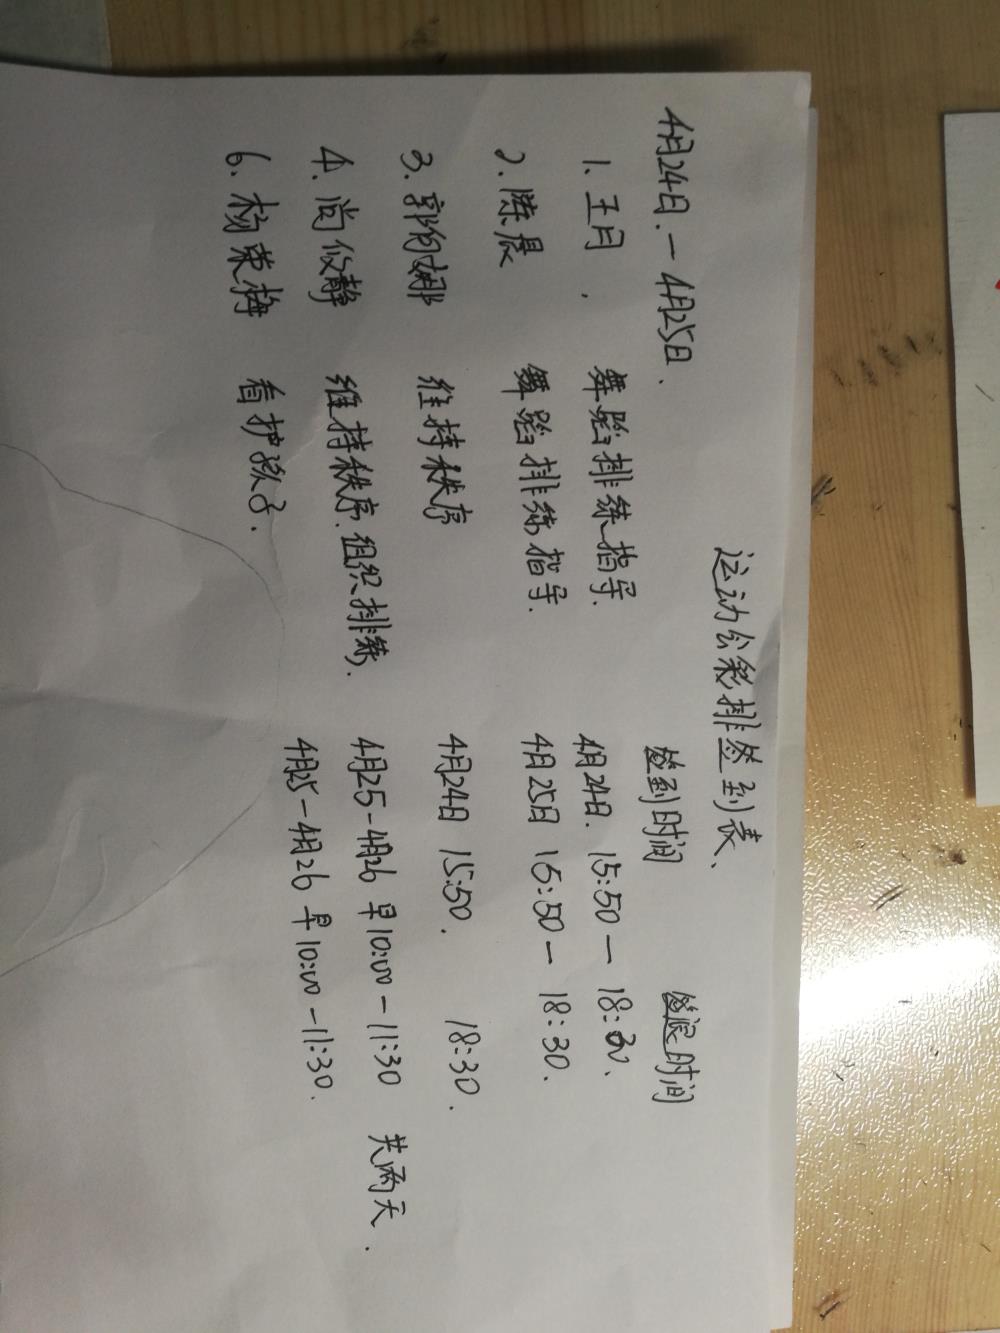 运动会彩排签到表、
4月24日.一4月25日、 签到时间 签退时间
1. 王月. 舞蹈排练指导. 4月24日. 15:50 — 18:30、
2. 陈晨 舞蹈排练指导. 4月25日 15:50 — 18:30.
3. 郭向娜 维持秩序 4月24日 15:50. 18:30.
4. 尚俊静 维持秩序.组织排练, 4月25-4月26 早10:00-11:30 共两天.
6. 杨荣梅 看护孩子. 4月25-4月26 早10:00-11:30.